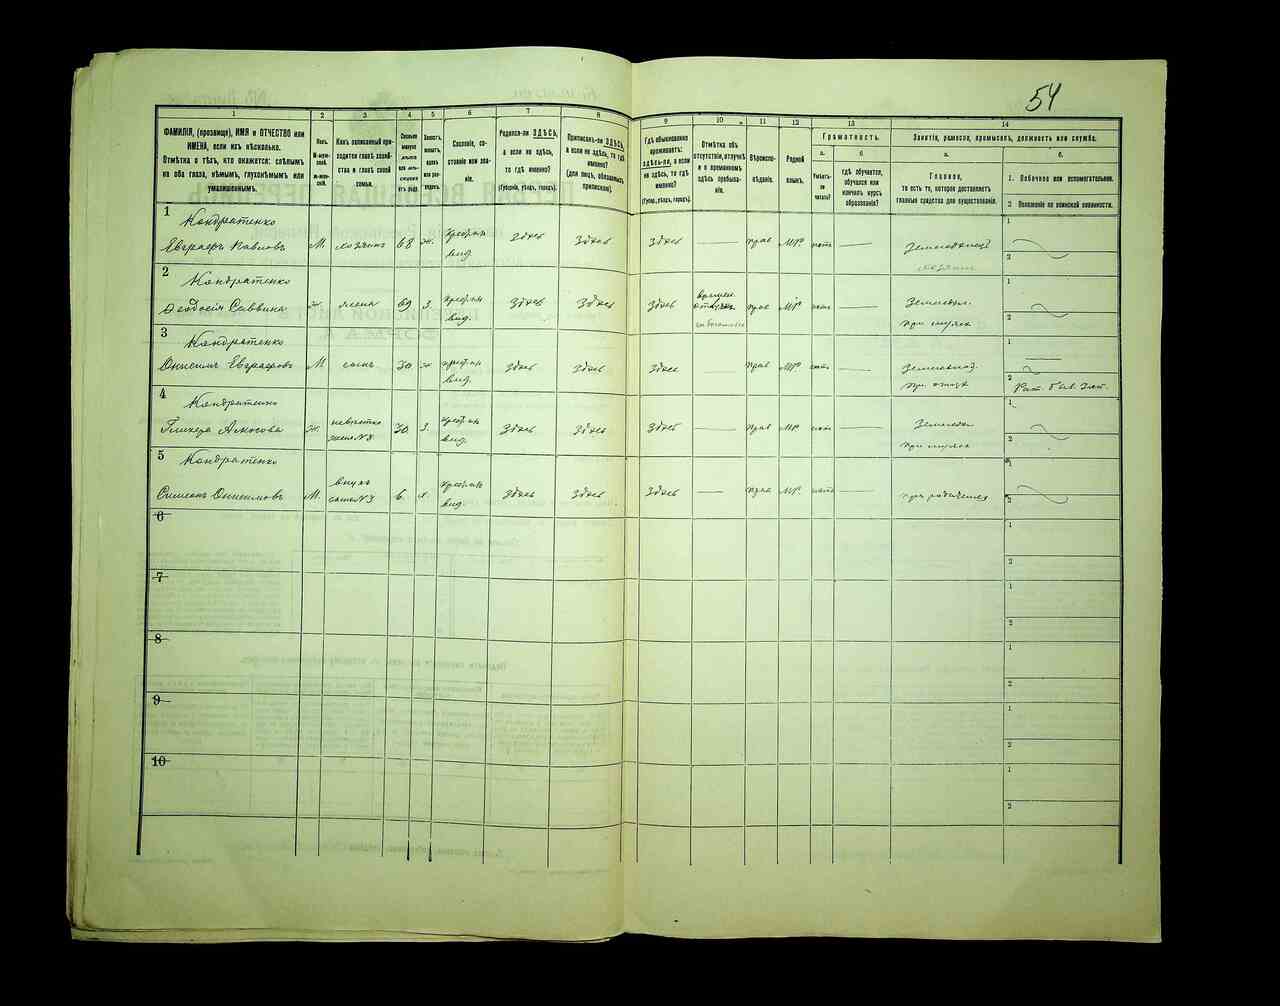 54
1 2 3 4 5 6 7 8 9 10 11 12 13 14
ФАМИЛІЯ, (прозвище), ИМЯ и ОТЧЕСТВО или
ИМЕНА, если ихъ нѣсколько.
Отмѣтка о тѣхъ, кто окажется: слѣпымъ
на оба глаза, нѣмымъ, глухонѣмымъ или
умалишеннымъ.
Полъ.
М-муж-
ской.
ж-жен-
скій.
Какъ записанный при-
ходится главѣ хозяй-
ства и главѣ своей
семьи.
Сколько
минуло
лѣтъ
или мѣ-
сяцевъ
отъ роду.
Холостъ,
женатъ,
вдовъ
или раз-
веденъ.
Сословіе, со-
стояніе или зва-
ніе.
Родился-ли ЗДѢСЬ,
а если не здѣсь,
то гдѣ именно?
(Губернія, уѣздъ, городъ).
Приписанъ-ли ЗДѢСЬ,
а если не здѣсь, то гдѣ
именно?
(Для лицъ, обязанныхъ
припиской).
Гдѣ обыкновенно
проживаетъ:
здѣсь-ли, а если
не здѣсь, то гдѣ
именно?
(Губер., уѣздъ, городъ).
Отмѣтка объ
отсутствіи, отлучкѣ
и о временномъ
здѣсь пребыва-
ніи.
Вѣроиспо-
вѣданіе.
Родной
языкъ.
Грамотность.
а.
Умѣетъ-
ли
читать?
б.
гдѣ обучается,
обучался или
кончилъ курсъ
образованія?
Занятіе, ремесло, промыселъ, должность или служба.
а.
Главное,
то есть то, которое доставляетъ
главныя средства для существованія.
б.
1. Побочное или вспомогательное.
2 Положеніе по воинской повинности.
1
Кондратенко
Евграфъ Павловъ М хозяинъ 68 ж. крест. из влад. Здѣсь Здѣсь Здѣсь — прав МР. нѣтъ — Земледѣлецъ
хозяинъ
1
2
2
Кондратенко
Феодосія Саввина ж. жена 69 з. крест. из влад. Здѣсь Здѣсь Здѣсь времен. отлуч. прав МР нѣтъ — Земледѣл.
при мужѣ
1
2
3
Кондратенко
Онисимъ Евграфовъ М сынъ 30 ж крест. из влад. Здѣсь Здѣсь Здѣсь — прав МР нѣтъ — Земледѣл.
при отцѣ
1 —
2 Рат.
4
Кондратенко
Гликерія ж. невѣстка
жена №3 30 з. крест. из влад. Здѣсь Здѣсь Здѣсь — прав МР нѣтъ — Земледѣл
при мужѣ
1
2
5
Кондратенко
Симеонъ Онисимовъ М. внукъ
сынъ №3 6 х. крест. из влад. Здѣсь Здѣсь Здѣсь — прав МР. нѣтъ — при родителяхъ
1
2
6
1
2
7
1
2
8
1
2
9
1
2
10
1
2